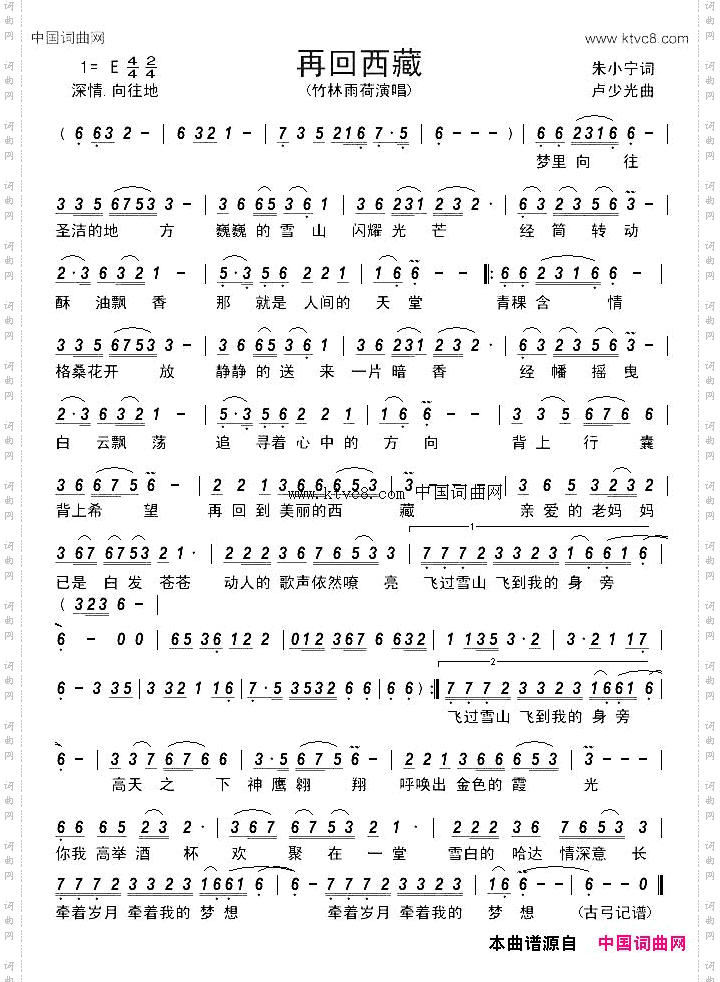 中国词曲网
www.ktvc8.com
再回西藏
1= E 4/4 2/4
朱小宁词
深情.向往地
(竹林雨荷演唱)
卢少光曲
( 6 6 3 2 – | 6 3 2 1 – | 7 3 5 2 2 1 6 7·5 | 6 – – – ) | 6 6 2 3 1 6 6 –
梦里 向 往
3 3 5 6 7 5 3 3 – | 3 6 6 5 3 6 1 | 3 6 2 3 1 2 3 2· | 6 3 2 3 5 6 3
圣洁的地 方 巍巍的雪山 闪耀光芒 经筒转动
2·3 6 3 2 1 2 – | 5·3 5 6 2 2 1 | 1 6 6 – 𝄆 6 6 2 3 1 6 6 –
酥油飘香 那就是人间的天堂 青稞含情
3 3 5 6 7 5 3 3 – | 3 6 6 5 3 6 1 | 3 6 2 3 1 2 3 2· | 6 3 2 3 5 6 3
格桑花开 放 静静的送来 一片暗香 经幡摇曳
2·3 6 3 2 1 2 – | 5·3 5 6 2 2 1 | 1 6 6 – | 3 3 5 6 7 6 6
白云飘荡 追寻着心中的方向 背上行囊
3 6 6 7 5 6 – | 2 2 1 3 6 6 6 5 3 | 6 – – – | 3 6 5 3 2 3 2
www.ktvc8.com 中国词曲网
背上希望 再回到美丽的西藏 亲爱的老妈妈
1
3 6 7 6 7 5 3 2 1· | 2 2 2 3 6 7 6 5 3 3 | 7 7 7 2 3 3 2 3 1 6 6 1 6
已是白发苍苍 动人的歌声依然嘹亮 飞过雪山 飞到我的身旁
( 3 2 3 6 – |
6 – 0 0 | 6 5 3 6 1 2 2 | 0 1 2 3 6 7 6 6 3 2 | 1 1 3 5 3·2 | 3·2 1 1 7
6 – 3 3 5 | 3 3 2 1 1 6 | 7·5 3 5 3 2 6 6 | 6 6 ) 𝄇
2
7 7 7 2 3 3 2 3 1 6 6 1 6
飞过雪山 飞到我的身旁
6 – | 3 3 7 6 7 6 6 | 3 3 5 6 7 5 6 | 2 2 1 3 6 6 6 5 3 | 3 – – –
高天之下 神鹰翱翔 呼唤出金色的霞光
6 6 6 5 2 3 2· | 3 6 7 6 7 5 3 2 1· | 2 2 2 3 6 7 6 5 3 3
你我高举酒杯 欢聚在一堂 雪白的哈达情深意长
7 7 7 2 3 3 2 3 1 6 6 1 6 | 6 – 7 7 7 2 3 3 2 3 | 1 6 6 – | 6 – 0 ‖
牵着岁月 牵着我的梦想 牵着岁月 牵着我的梦想 (古弓记谱)
本曲谱源自 中国词曲网
词曲网